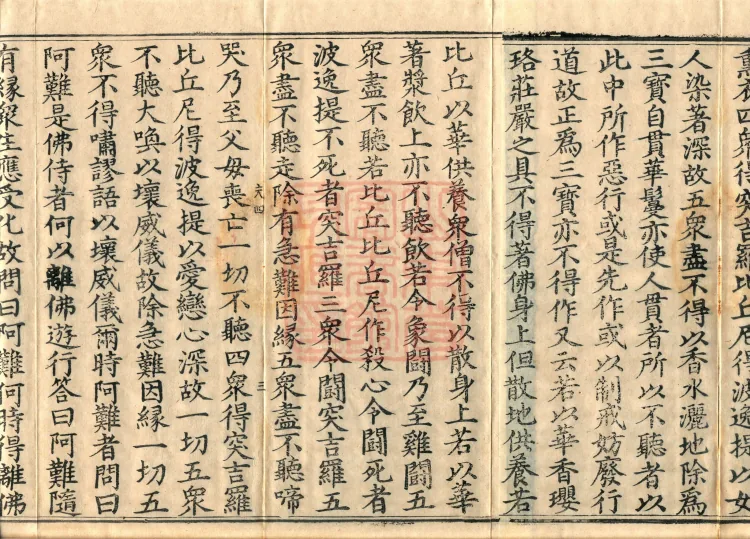 熏衣四衆得突吉羅比丘尼得波逸提以女
人染著深故五衆盡不得以香水灑地除爲
三寶自貫華鬘亦使人貫者所以不聽者以
此中所作惡行或是先作或以制戒妨廢行
道故正爲三寶亦不得作又云若以華香瓔
珞莊嚴之具不得著佛身上但散地供養若
比丘以華供養衆僧不得以散身上若以華
著漿飲上亦不聽飲若令象鬪乃至雞鬪五
衆盡不聽若比丘比丘尼作殺心令鬪死者
波逸提不死者突吉羅三衆令鬪突吉羅五
衆盡不聽走除有急難因緣五衆盡不聽啼
三
哭乃至父母喪亡一切不聽四衆得突吉羅
比丘尼得波逸提以愛戀心深故一切五衆
不聽大喚以壞威儀故除急難因緣一切五
衆不得嘯謬語以壞威儀爾時阿難者問曰
阿難是佛侍者何以離佛遊行答曰阿難隨
有緣衆生應受化故問曰阿難何時得離佛